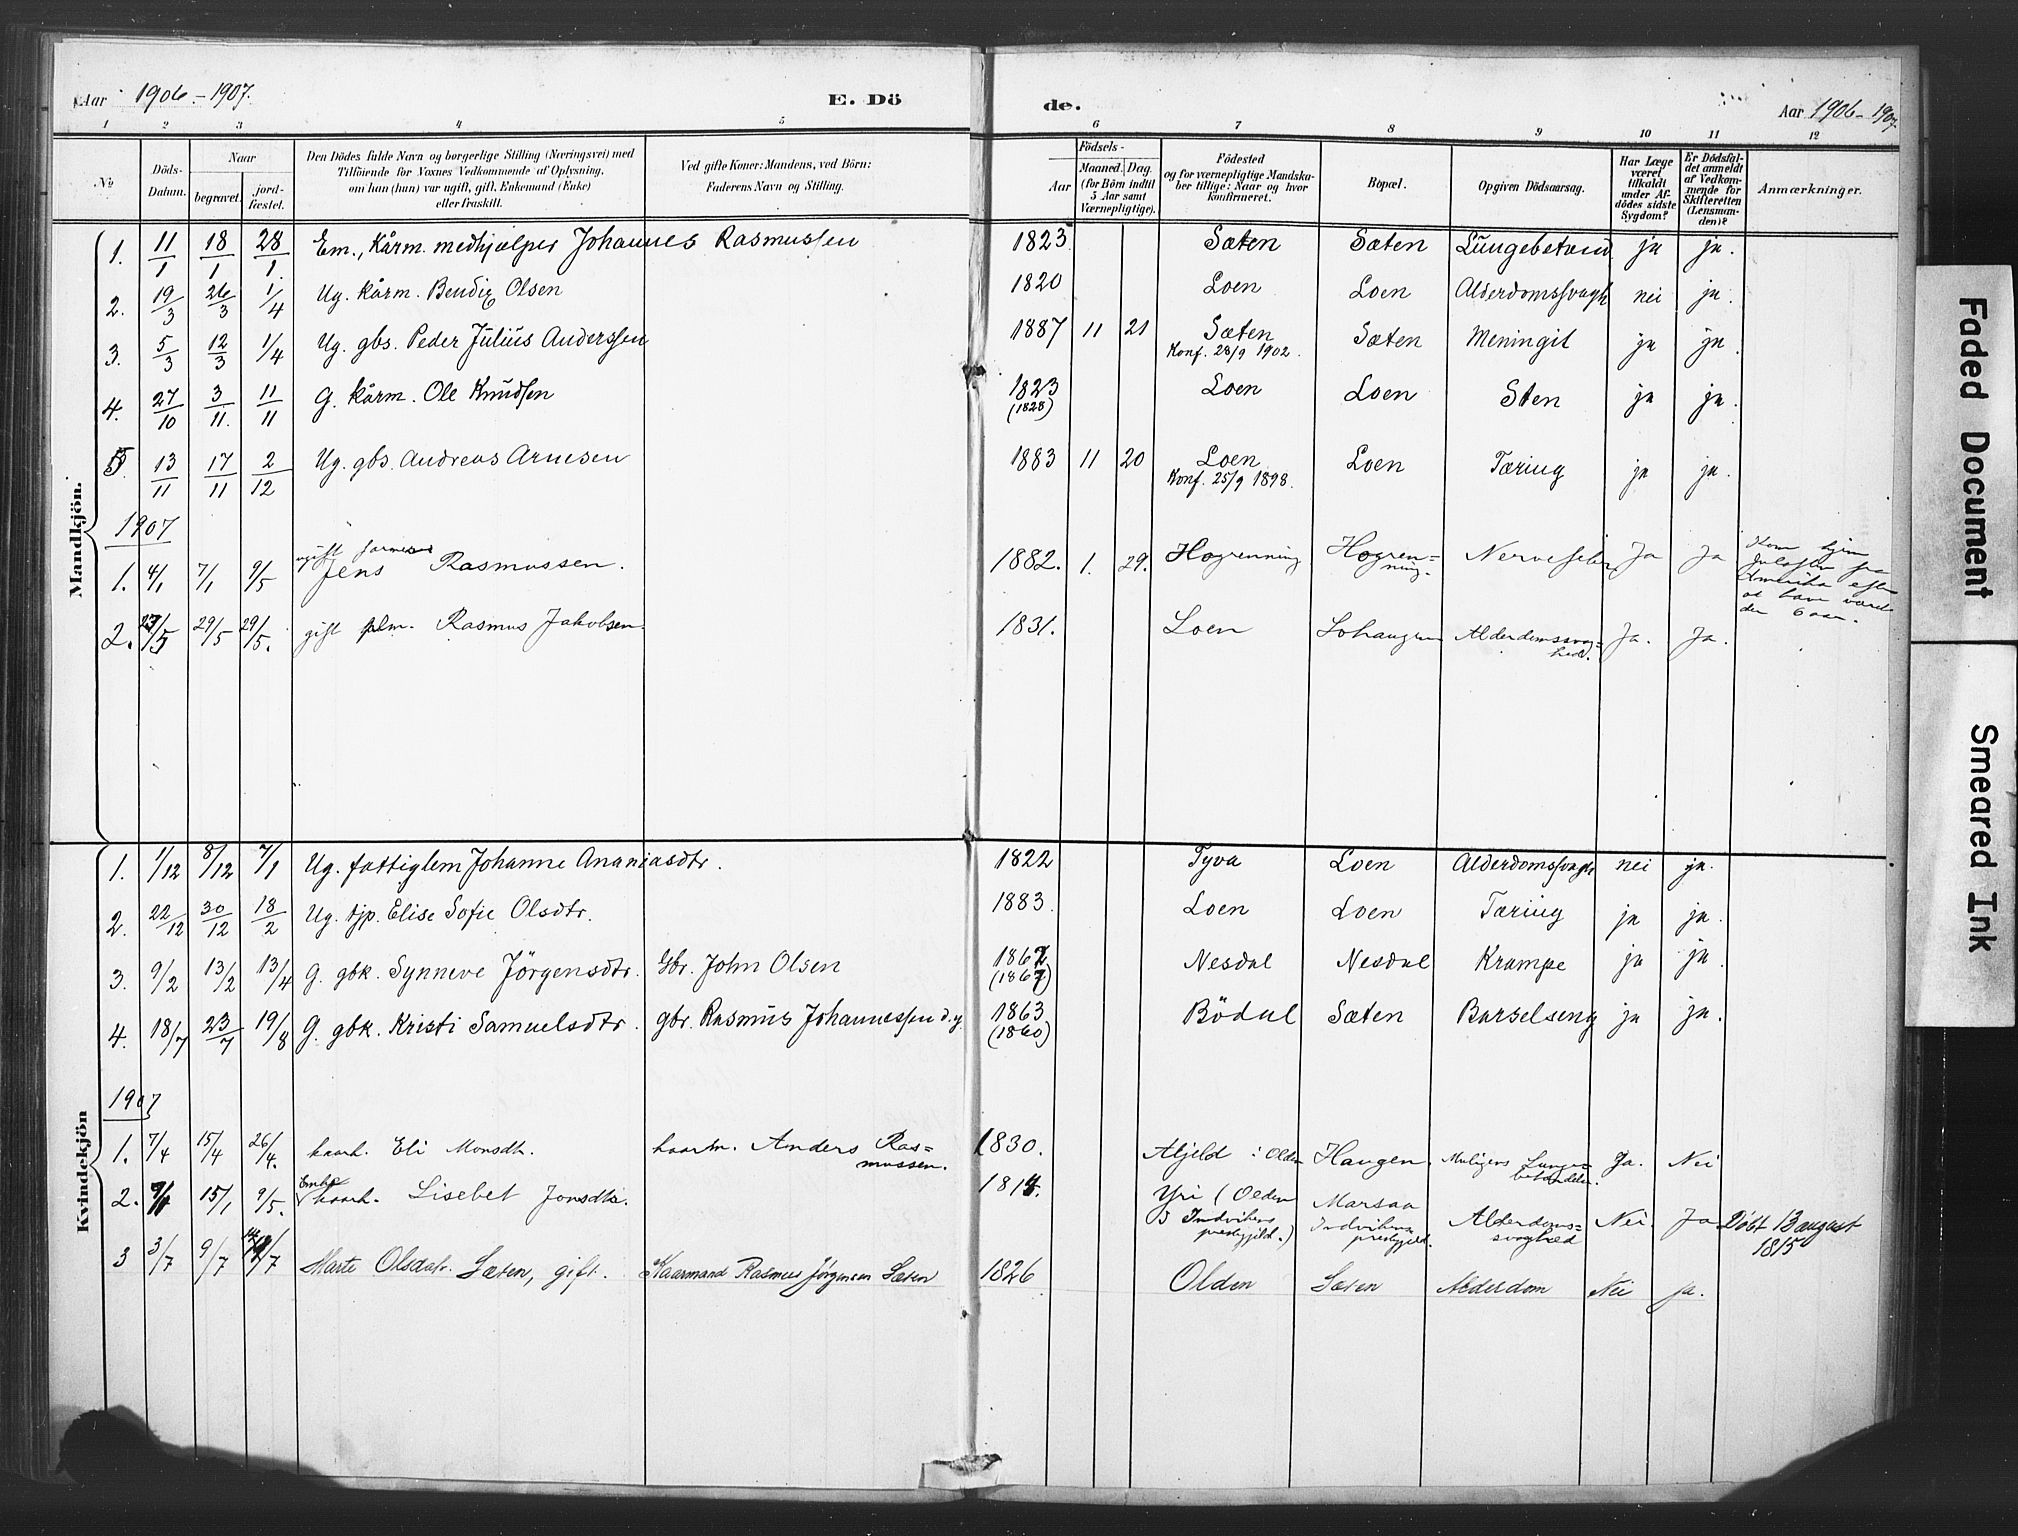 Aar 1906-1907.
E. Dö
de.
Aar 1906-1907.
1 2 3 4 5 6 7 8 9 10 11 12
No
Döds-
Datum.
Naar
begravet.
jord-
fæstet.
Den Dödes fulde Navn og borgerlige Stilling (Næringsvei) med
Tilföiende for Voxnes Vedkommende af Oplysning,
om han (hun) var ugift, gift, Enkemand (Enke)
eller fraskilt.
Ved gifte Koner: Mandens, ved Börn:
Faderens Navn og Stilling.
Födsels-
Aar
Maaned. Dag.
(for Börn indtil
5 Aar samt
Værnepligtige).
Födested
og for værnepligtige Mandska-
ber tillige: Naar og hvor
konfirmeret.
Bopæl.
Opgiven Dödsaarsag.
Har Læge
været
tilkaldt
under Af-
dödes sidste
Sygdom?
Er Dödsfal-
det anmeldt
af Vedkom-
mende for
Skifteretten
(Lensman-
den)?
Anmærkninger.
Mandkjön.
1. 11/1 18/1 28/1 Em., Kårm. medhjælper Johannes Rasmussen 1823 Sæten Sæten Lungebetænd ja ja.
2. 19/3 26/3 1/4 Ug. kårm. Bendix Olsen 1820 Loen Loen Alderdomssvagh nei ja.
3. 5/3 12/3 1/4 Ug. gbs. Peder Julius Anderssen 1887 11 21 Sæten Sæten Meningit ja ja.
Konf. 28/9 1902.
4. 27/10 3/11 11/11 G. kårm. Ole Knudsen 1823 Loen Loen Sten ja ja.
(1828)
5. 13/11 17/11 2/12 Ug. gbs. Andreas Arnesen 1883 11 20 Loen Loen Tæring ja ja.
Konf. 25/9 1898.
1907
1. 4/1 7/1 9/5 ugift
Jens Rasmussen. 1882. 1. 29. Hogrenning Hogren-
ning. Ja Ja
Kom hjem
Juleaften fra
Amerika efter
at have været
der 6 aar.
2. 29/5 29/5. gift Rasmus Jakobsen. 1831. Loen Alderdomssvag-
hed. Ja. Ja.
Kvindekjön
1. 1/12 8/12 7/1 Ug. fattiglem Johanne Ananiasdtr. 1822 Tyva Loen Alderdomssvagh nei ja.
2. 22/12 30/12 18/2 Ug. tjp. Elise Sofie Olsdtr. 1883 Loen Loen Tæring ja ja.
3. 9/2 13/2 13/4 G. gbk. Synneve Jörgensdtr. Gbr. John Olsen 1867 Nesdal Nesdal Krampe ja ja.
4. 18/7 23/7 19/8 G. gbk. Kristi Samuelsdtr. gbr. Rasmus Johannessen d.y. 1863 Bödal Sæten Barselseng ja ja.
(1860)
1907
1. 7/4 15/4 26/4. kaark. Eli Monsdtr. kaarm. Anders Ras-
mussen. 1830. i Olden Haugen Muligens Lunge-
betændelse. Ja. Nei
2. 15/1 9/5. Enke
kaark. Lisebet Jonsdtr. Yri (Olden
i Indvikens
prestgjeld.) Marsaa
Indvikens
prestgjeld. Alderdoms-
svaghed Nei. Ja Döbt 13 august
1815
3 3/7 9/7 Marte Olsdatr. Sæten, gift. Kaarmand Rasmus Jørgensen Sæten 1826 Olden Sæten Alderdom Nei ja.
Faded Document
Smeared Ink